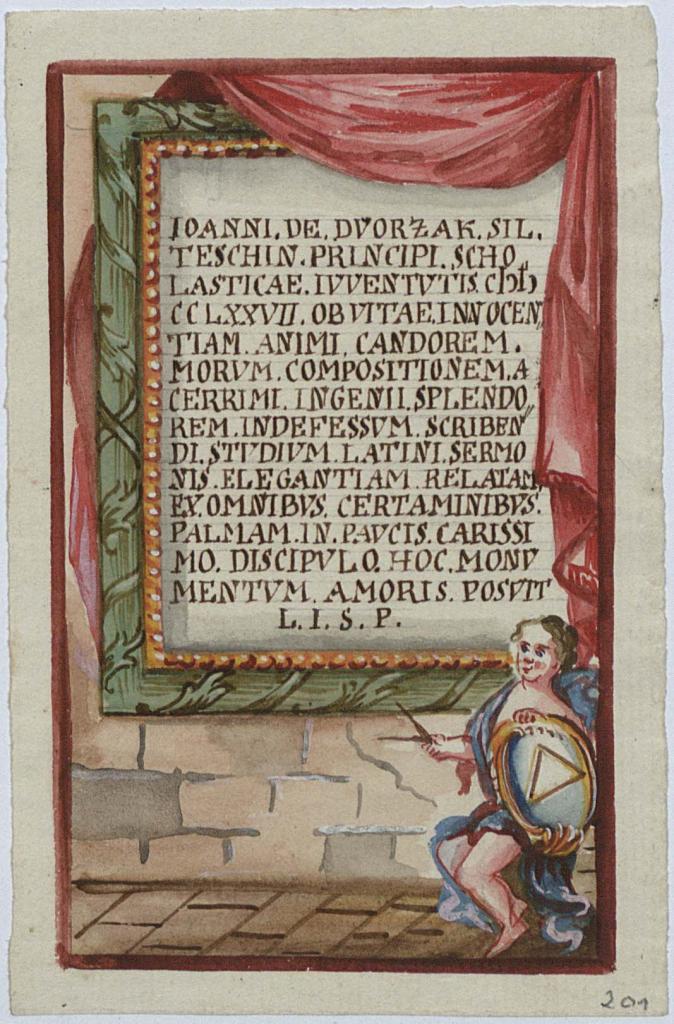 IOANNI. DE. DVORŻAK. SIL.
TESCHIN. PRINCIPI. SCHO„
LASTICAE. IVVENTVTIS. CIƆIƆ
CCLXXVII. OB VITAE. INNOCEN„
TIAM. ANIMI. CANDOREM.
MORVM. COMPOSITIONEM. A
CERRIMI. INGENII. SPLENDO„
REM. INDEFESSVM. SCRIBEN„
DI. STVDIVM. LATINI. SERMO
NIS. ELEGANTIAM. RELATAM,
EX. OMNIBVS. CERTAMINIBVS.
PALMAM. IN. PAVCIS. CARISSI
MO. DISCIPVLO. HOC. MONV
MENTVM. AMORIS. POSVIT
L. I. S. P.
201